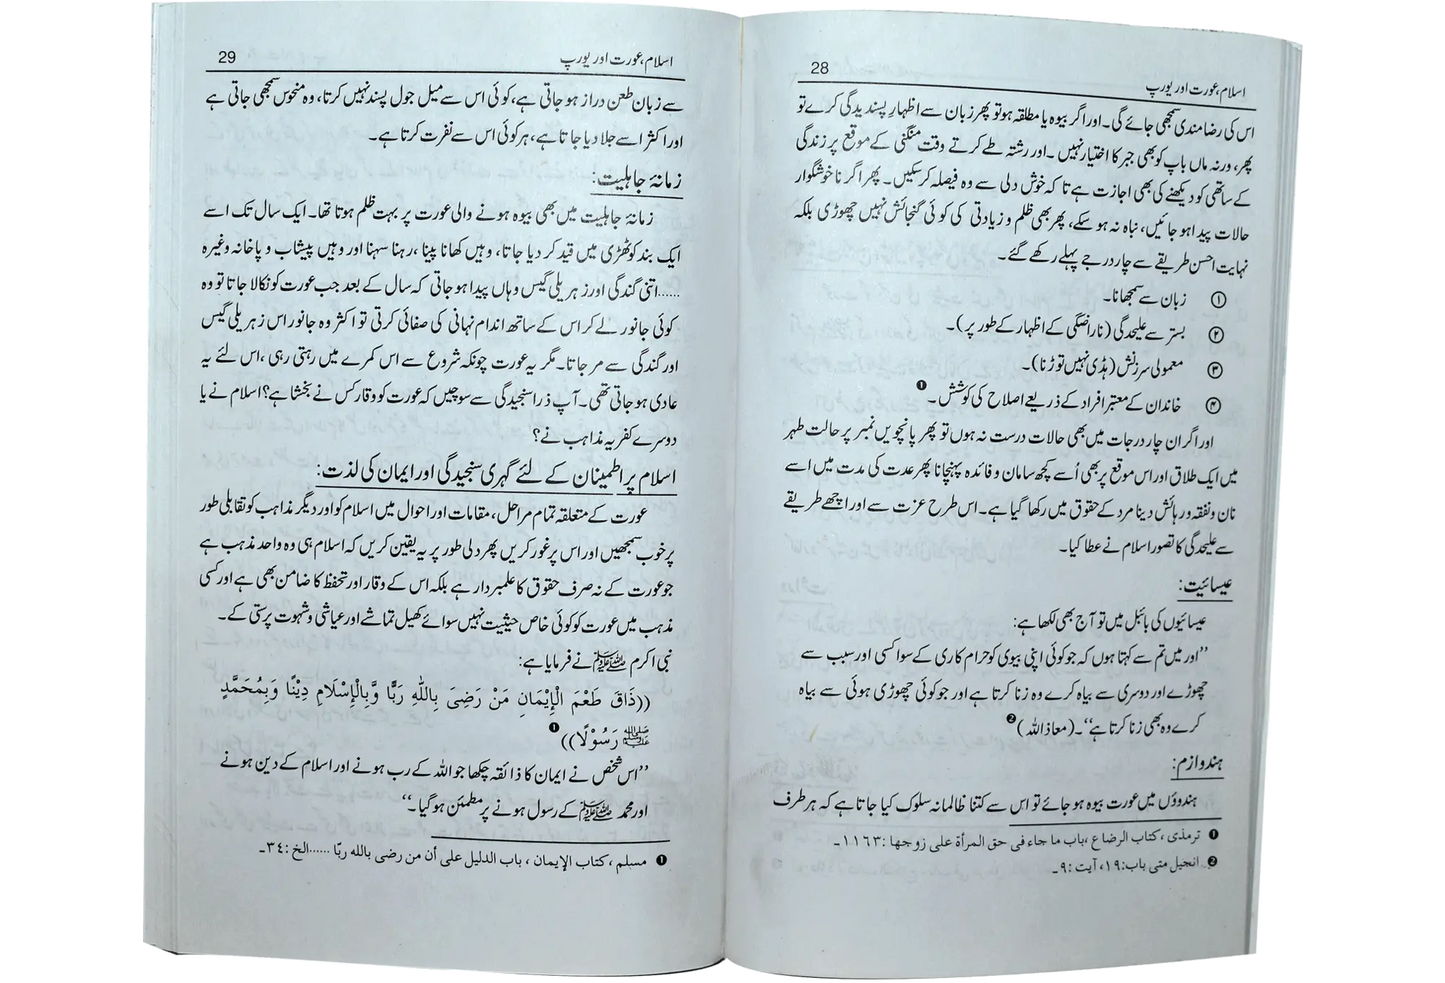 اسلام، عورت اور یورپ 28
اس کی رضا مندی سمجھی جائے گی۔ اور اگر بیوہ یا مطلقہ ہو تو پھر زبان سے اظہارِ پسندیدگی کرے تو
پھر، ورنہ ماں باپ کو بھی جبر کا اختیار نہیں ۔ اور رشتہ طے کرتے وقت منگنی کے موقع پر زندگی
کے ساتھی کو دیکھنے کی بھی اجازت ہے تا کہ خوش دلی سے وہ فیصلہ کر سکیں۔ پھر اگر نا خوشگوار
حالات پیدا ہو جائیں، نباہ نہ ہو سکے، پھر بھی ظلم و زیادتی کی کوئی گنجائش نہیں چھوڑی بلکہ
نہایت احسن طریقے سے چار درجے پہلے رکھے گئے۔
① زبان سے سمجھانا۔
② بستر سے علیحدگی (ناراضگی کے اظہار کے طور پر)۔
③ معمولی سرزنش (ہڈی نہیں توڑنا)۔
④ خاندان کے معتبر افراد کے ذریعے اصلاح کی کوشش۔ ❶
اور اگر ان چار درجات میں بھی حالات درست نہ ہوں تو پھر پانچویں نمبر پر حالت طہر
میں ایک طلاق اور اس موقع پر بھی اُسے کچھ سامان و فائدہ پہنچانا پھر عدت کی مدت میں اسے
نان و نفقہ ور ہائش دینا مرد کے حقوق میں رکھا گیا ہے۔ اس طرح عزت سے اور اچھے طریقے
سے علیحدگی کا تصور اسلام نے عطا کیا۔
عیسائیت:
عیسائیوں کی بائبل میں تو آج بھی لکھا ہے:
’’اور میں تم سے کہتا ہوں کہ جو کوئی اپنی بیوی کو حرام کاری کے سوا کسی اور سبب سے
چھوڑے اور دوسری سے بیاہ کرے وہ زنا کرتا ہے اور جو کوئی چھوڑی ہوئی سے بیاہ
کرے وہ بھی زنا کرتا ہے‘‘۔ (معاذ اللہ) ❷
ہندوازم:
ہندوؤں میں عورت بیوہ ہو جائے تو اس سے کتنا ظالمانہ سلوک کیا جاتا ہے کہ ہر طرف
❶ ترمذی ، کتاب الرضاع ، باب ما جاء فی حق المرأة علی زوجها : ١١٦٣۔
❷ انجیل متی باب: ۱۹، آیت : ۹۔
اسلام، عورت اور یورپ 29
سے زبان طعن دراز ہو جاتی ہے، کوئی اس سے میل جول پسند نہیں کرتا، وہ منحوس سمجھی جاتی ہے
اور اکثر اسے جلا دیا جاتا ہے، ہر کوئی اس سے نفرت کرتا ہے۔
زمانۂ جاہلیت:
زمانۂ جاہلیت میں بھی بیوہ ہونے والی عورت پر بہت ظلم ہوتا تھا۔ ایک سال تک اسے
ایک بند کوٹھڑی میں قید کر دیا جاتا، وہیں کھانا پینا ،رہنا سہنا اور وہیں پیشاب و پاخانہ وغیرہ
......اتنی گندگی اور زہریلی گیس وہاں پیدا ہو جاتی کہ سال کے بعد جب عورت کو نکالا جاتا تو وہ
کوئی جانور لے کر اس کے ساتھ اندام نہانی کی صفائی کرتی تو اکثر وہ جانور اس زہریلی گیس
اور گندگی سے مر جاتا۔ مگر یہ عورت چونکہ شروع سے اس کمرے میں رہتی رہی ،اس لئے یہ
عادی ہو جاتی تھی۔ آپ ذرا سنجیدگی سے سوچیں کہ عورت کو وقار کس نے بخشا ہے؟ اسلام نے یا
دوسرے کفریہ مذاہب نے؟
اسلام پر اطمینان کے لئے گہری سنجیدگی اور ایمان کی لذت:
عورت کے متعلقہ تمام مراحل، مقامات اور احوال میں اسلام کو اور دیگر مذاہب کو تقابلی طور
پر خوب سمجھیں اور اس پر غور کریں پھر دلی طور پر یہ یقین کریں کہ اسلام ہی وہ واحد مذہب ہے
جو عورت کے نہ صرف حقوق کا علمبردار ہے بلکہ اس کے وقار اور تحفظ کا ضامن بھی ہے اور کسی
مذہب میں عورت کو کوئی خاص حیثیت نہیں سوائے کھیل تماشے اور عیاشی و شہوت پرستی کے۔
نبی اکرم ﷺ نے فرمایا ہے:
((ذَاقَ طَعْمَ الْإِيْمَانِ مَنْ رَضِيَ بِاللّٰهِ رَبًّا وَّبِالْإِسْلَامِ دِيْنًا وَبِمُحَمَّدٍ
ﷺ رَسُوْلًا)) ❶
’’اس شخص نے ایمان کا ذائقہ چکھا جو اللہ کے رب ہونے اور اسلام کے دین ہونے
اور محمد ﷺ کے رسول ہونے پر مطمئن ہو گیا۔‘‘
❶ مسلم ، کتاب الإیمان ، باب الدلیل علی أن من رضی باللہ ربّا ......الخ : ٣٤۔